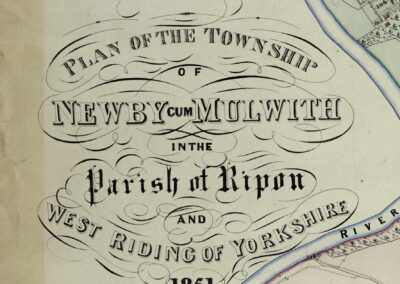 PLAN OF THE TOWNSHIP
OF
NEWBY CUM MULWITH
IN THE
Parish of Ripon
AND
WEST RIDING OF YORKSHIRE
1851
RIVER